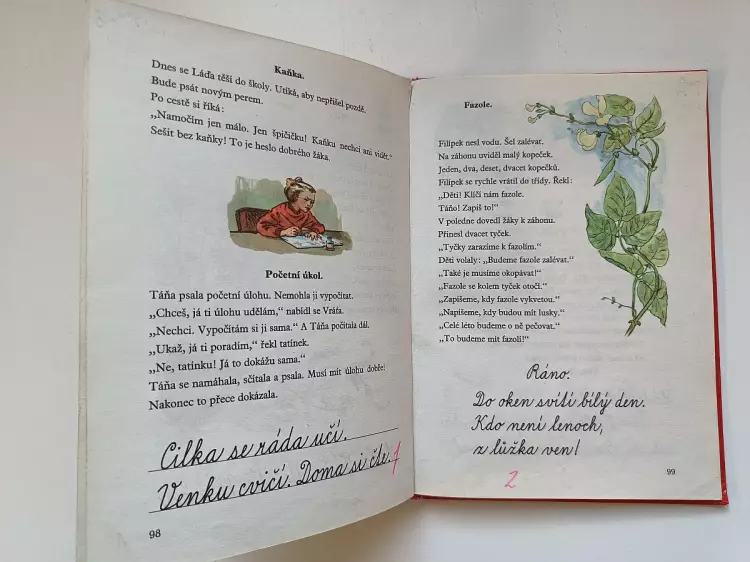 Kaňka.
Dnes se Láďa těší do školy. Utíká, aby nepřišel pozdě.
Bude psát novým perem.
Po cestě si říká:
„Namočím jen málo. Jen špičičku! Kaňku nechci ani vidět.“
Sešit bez kaňky! To je heslo dobrého žáka.
Početní úkol.
Táňa psala početní úlohu. Nemohla ji vypočítat.
„Chceš, já ti úlohu udělám,“ nabídl se Vráťa.
„Nechci. Vypočítám si ji sama.“ A Táňa počítala dál.
„Ukaž, já ti poradím,“ řekl tatínek.
„Ne, tatínku! Já to dokážu sama.“
Táňa se namáhala, sčítala a psala. Musí mít úlohu dobře!
Nakonec to přece dokázala.
Cilka se ráda učí.
Venku cvičí. Doma si čte.
1
98
Fazole.
Filípek nesl vodu. Šel zalévat.
Na záhonu uviděl malý kopeček.
Jeden, dva, deset, dvacet kopečků.
Filípek se rychle vrátil do třídy. Řekl:
„Děti! Klíčí nám fazole.
Táňo! Zapiš to!“
V poledne dovedl žáky k záhonu.
Přinesl dvacet tyček.
„Tyčky zarazíme k fazolím.“
Děti volaly: „Budeme fazole zalévat.“
„Také je musíme okopávat!“
„Fazole se kolem tyček otočí.“
„Zapíšeme, kdy fazole vykvetou.“
„Napíšeme, kdy budou mít lusky.“
„Celé léto budeme o ně pečovat.“
„To budeme mít fazolí!“
Ráno.
Do oken svítí bílý den.
Kdo není lenoch,
z lůžka ven!
99
2